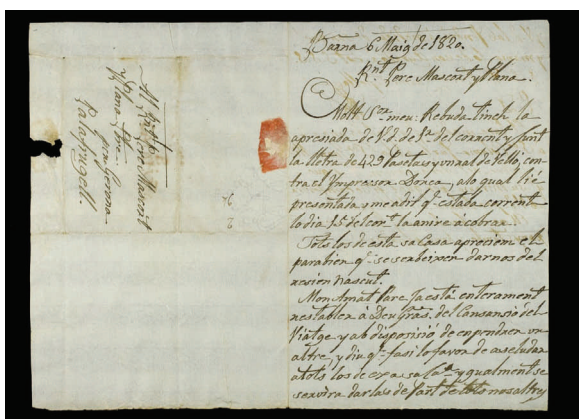 Al Sr. Dn.
Pere Mascort
y Plana &
Gra. Gerona
Palafrugell.
Barna 6 Maig de 1820.
Rnt. Pere Mascort y Plana.
Molt Sor. meu: Rebuda tinch la
apresiada de Vd. de 1r. del corrent y junt
la lletra de 429 Pasetas y un ral de velló, con-
tra el Impressor Dorca, a lo qual li é
presentada y me a dit q. estaba corrent
lo dia 15 del cort. la aniré á cobrar.
Tots los de esta sa Casa aprecien el
parabien q. se serbeixen darnos del
resien nascut.
Mon Amat Pare ja está enterament
restablert á Deu Gras. del Cansansio del
Viatge y ab disposisió de empendrer un
altre, y diu q. fasi lo favor de saludar
a tots los de exa sa Ca. y igualment se
servirá darlas de part de tots nosaltres